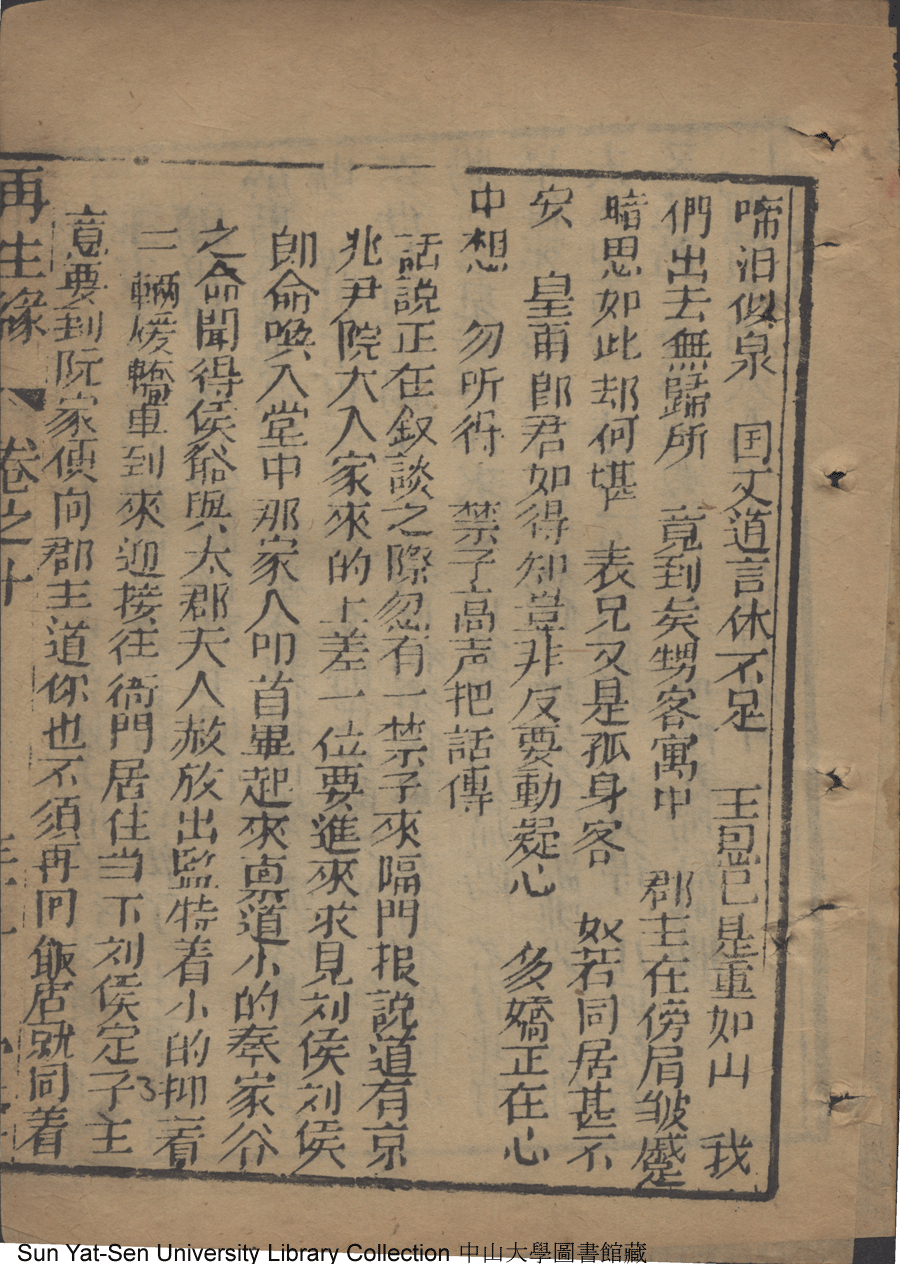 啼泪似泉　国丈道言休不足　王恩已是重如山　我
們出去無歸所　竟到矣甥客寓中　郡主在傍眉皱蹙
暗思如此却何堪　表兄又是孤身客　奴若同居甚不
安　皇甫郎君如得知豈非反要動疑心　多嬌正在心
中想　勿听得　禁子高声把話傳
話説正在叙談之際忽有一禁子來隔門报説道有京
兆尹院大人家來的上差一位要進來求見刘侯刘侯
即命喚入堂中那家人叩首畢起來禀道小的奉家爷
之命聞得侯爺與太郡夫人赦放出監特着小的抑着
二輛煖轎車到來迎接往衙門居住当下刘侯定了主
意要到阮家便向郡主道你也不須再问飯店就同着
再生緣　卷之十
3
Sun Yat-Sen University Library Collection 中山大學圖書館藏